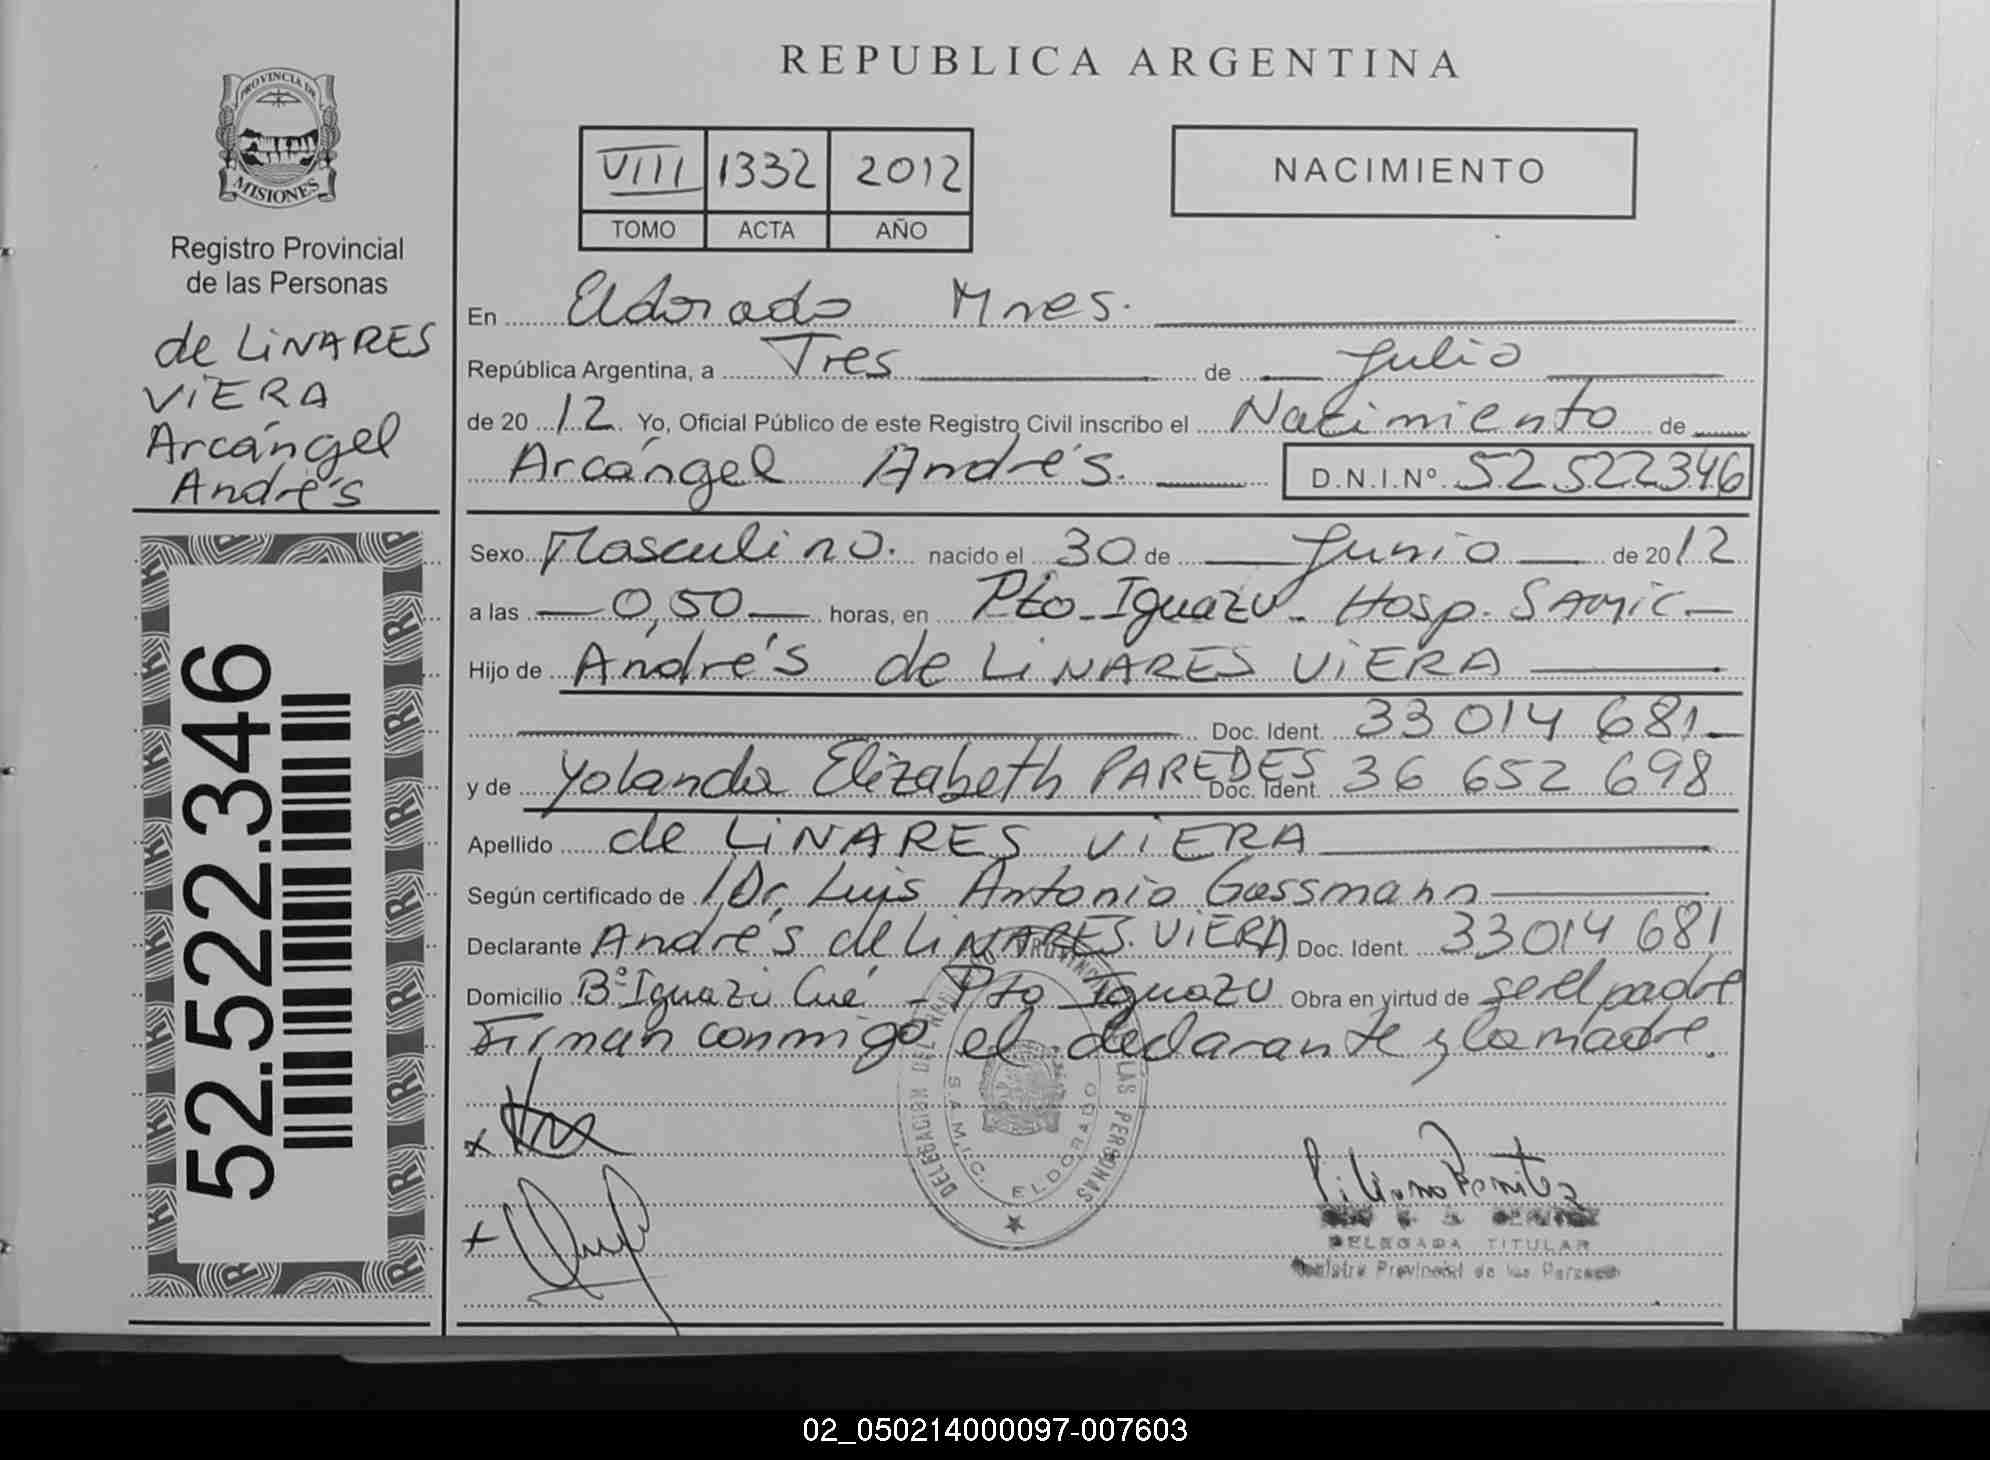 PROVINCIA DE
MISIONES
Registro Provincial
de las Personas
de LiNARES
ViERA
Arcángel
Andrés
52.522.346
REPUBLICA ARGENTINA
VIII 1332 2012
TOMO ACTA AÑO
NACIMIENTO
En Eldorado Mnes.
República Argentina, a Tres de Julio
de 20 12 Yo, Oficial Público de este Registro Civil inscribo el Nacimiento de
Arcángel Andrés. D.N.I.Nº 52 522346
Sexo Masculino. nacido el 30 de Junio de 20 12
a las 0,50 horas, en Pto-Iguazu- Hosp. SAMIC-
Hijo de Andrés de LiNARES ViERA
Doc. Ident. 33 014 681
y de Yolanda Elizabeth PAREDES Doc. Ident. 36 652 698
Apellido de LiNARES ViERA
Según certificado de Dr, Luis Antonio Gassmann
Declarante Andrés de LiNARES ViERA Doc. Ident. 33014 681
Domicilio Bº Iguazú Cué - Pto Iguazu Obra en virtud de ser el padre
Firman conmigo el declarante y la madre.
x
+
S.A.M.I.C. ELDORADO
DELEGADA TITULAR
Registro Provincial de las Personas
02_050214000097-007603